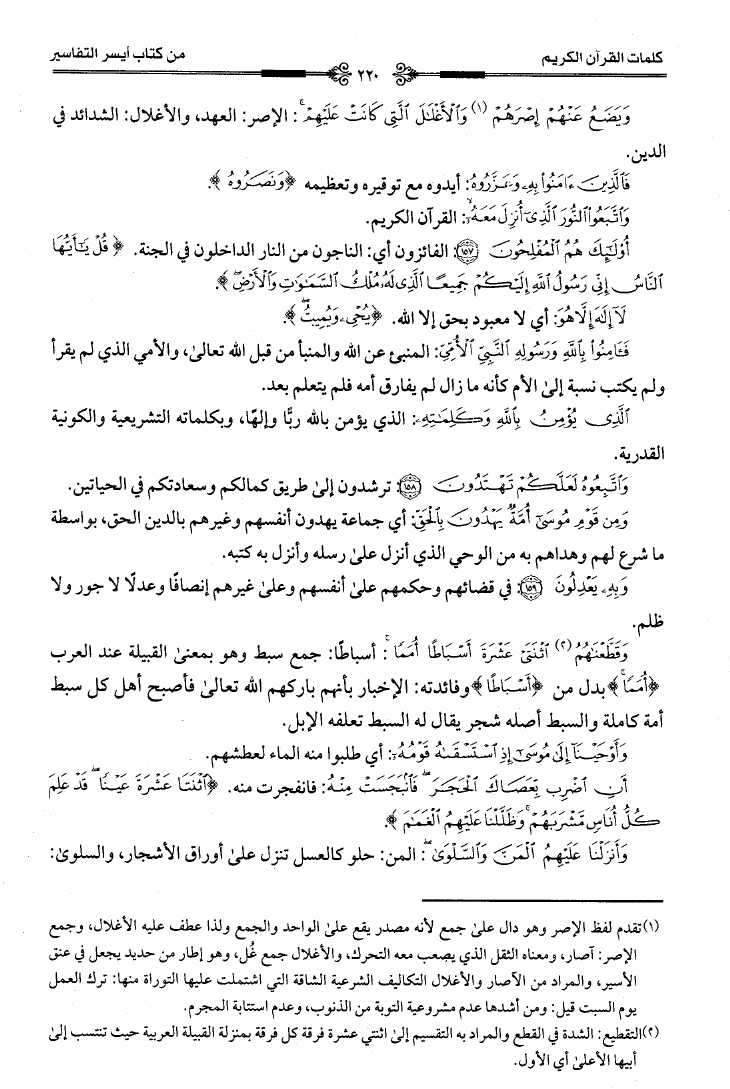 كلمات القرآن الكريم ٢٢٠ من كتاب أيسر التفاسير
وَيَضَعُ عَنْهُمْ إِصْرَهُمْ (١) وَالْأَغْلَالَ الَّتِي كَانَتْ عَلَيْهِمْ: الإصر: العهد، والأغلال: الشدائد في
الدين.
فَالَّذِينَ ءَامَنُوا بِهِ وَعَزَّرُوهُ: أيدوه مع توقيره وتعظيمه ﴿وَنَصَرُوهُ﴾.
وَاتَّبَعُوا النُّورَ الَّذِي أُنزِلَ مَعَهُ: القرآن الكريم.
أُوْلَٰئِكَ هُمُ الْمُفْلِحُونَ ١٥٧: الفائزون أي: الناجون من النار الداخلون في الجنة. ﴿قُلْ يَٰأَيُّهَا
النَّاسُ إِنِّي رَسُولُ اللَّهِ إِلَيْكُمْ جَمِيعًا الَّذِي لَهُ مُلْكُ السَّمَٰوَٰتِ وَالْأَرْضِ﴾.
لَا إِلَٰهَ إِلَّا هُوَ: أي لا معبود بحق إلا الله. ﴿يُحْيِ وَيُمِيتُ﴾.
فَـَٔامِنُوا بِاللَّهِ وَرَسُولِهِ النَّبِيِّ الْأُمِّيِّ: المنبئ عن الله والمنبأ من قبل الله تعالىٰ، والأمي الذي لم يقرأ
ولم يكتب نسبة إلىٰ الأم كأنه ما زال لم يفارق أمه فلم يتعلم بعد.
الَّذِي يُؤْمِنُ بِاللَّهِ وَكَلِمَٰتِهِ: الذي يؤمن بالله ربًّا وإلهًا، وبكلماته التشريعية والكونية
القدرية.
وَاتَّبِعُوهُ لَعَلَّكُمْ تَهْتَدُونَ ١٥٨: ترشدون إلىٰ طريق كمالكم وسعادتكم في الحياتين.
وَمِن قَوْمِ مُوسَىٰ أُمَّةٌ يَهْدُونَ بِالْحَقِّ: أي جماعة يهدون أنفسهم وغيرهم بالدين الحق، بواسطة
ما شرع لهم وهداهم به من الوحي الذي أنزل علىٰ رسله وأنزل به كتبه.
وَبِهِ يَعْدِلُونَ ١٥٩: في قضائهم وحكمهم علىٰ أنفسهم وعلىٰ غيرهم إنصافًا وعدلًا لا جور ولا
ظلم.
وَقَطَّعْنَٰهُمُ (٢) اثْنَتَيْ عَشْرَةَ أَسْبَاطًا أُمَمًا: أسباطًا: جمع سبط وهو بمعنىٰ القبيلة عند العرب
﴿أُمَمًا﴾ بدل من ﴿أَسْبَاطًا﴾ وفائدته: الإخبار بأنهم باركهم الله تعالىٰ فأصبح أهل كل سبط
أمة كاملة والسبط أصله شجر يقال له السبط تعلفه الإبل.
وَأَوْحَيْنَا إِلَىٰ مُوسَىٰ إِذِ اسْتَسْقَىٰهُ قَوْمُهُ: أي طلبوا منه الماء لعطشهم.
أَنِ اضْرِب بِّعَصَاكَ الْحَجَرَ فَانبَجَسَتْ مِنْهُ: فانفجرت منه. ﴿اثْنَتَا عَشْرَةَ عَيْنًا قَدْ عَلِمَ
كُلُّ أُنَاسٍ مَّشْرَبَهُمْ وَظَلَّلْنَا عَلَيْهِمُ الْغَمَٰمَ﴾.
وَأَنزَلْنَا عَلَيْهِمُ الْمَنَّ وَالسَّلْوَىٰ: المن: حلو كالعسل تنزل علىٰ أوراق الأشجار، والسلوىٰ:
(١) تقدم لفظ الإصر وهو دال علىٰ جمع لأنه مصدر يقع علىٰ الواحد والجمع ولذا عطف عليه الأغلال، وجمع
الإصر: آصار، ومعناه الثقل الذي يصعب معه التحرك، والأغلال جمع غُل، وهو إطار من حديد يجعل في عنق
الأسير، والمراد من الآصار والأغلال التكاليف الشرعية الشاقة التي اشتملت عليها التوراة منها: ترك العمل
يوم السبت قيل: ومن أشدها عدم مشروعية التوبة من الذنوب، وعدم استتابة المجرم.
(٢) التقطيع: الشدة في القطع والمراد به التقسيم إلىٰ اثنتي عشرة فرقة كل فرقة بمنزلة القبيلة العربية حيث تنتسب إلىٰ
أبيها الأعلىٰ أي الأول.